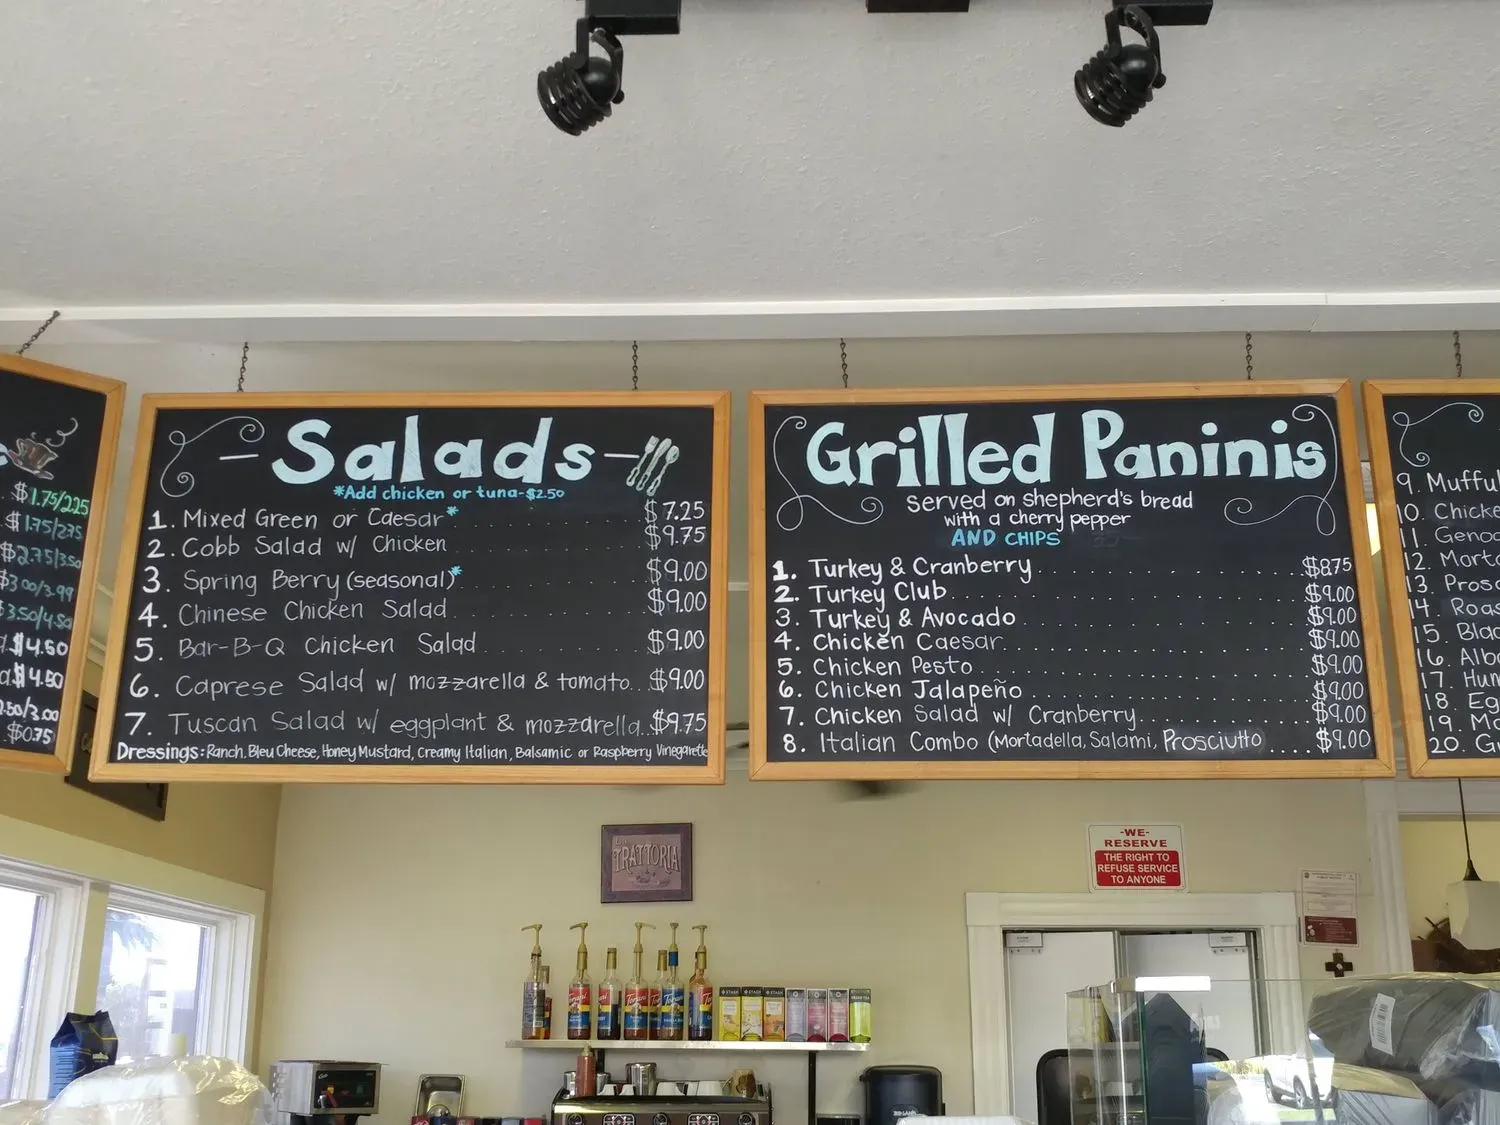 $1.75/2.25
$1.75/2.75
$2.75/3.50
$3.00/3.99
$3.50/4.50
$4.50
$4.50
2.50/3.00
$0.75
Salads
*Add chicken or tuna-$2.50
1. Mixed Green or Caesar* $7.25
2. Cobb Salad w/ Chicken $9.75
3. Spring Berry (seasonal)* $9.00
4. Chinese Chicken Salad $9.00
5. Bar-B-Q Chicken Salad $9.00
6. Caprese Salad w/ mozzarella & tomato... $9.00
7. Tuscan Salad w/ eggplant & mozzarella... $9.75
Dressings: Ranch, Bleu Cheese, Honey Mustard, Creamy Italian, Balsamic or Raspberry Vinegarette
Grilled Paninis
Served on shepherd's bread
with a cherry pepper
AND CHIPS
1. Turkey & Cranberry $8.75
2. Turkey Club $9.00
3. Turkey & Avocado $9.00
4. Chicken Caesar $9.00
5. Chicken Pesto $9.00
6. Chicken Jalapeño $9.00
7. Chicken Salad w/ Cranberry $9.00
8. Italian Combo (Mortadella, Salami, Prosciutto .... $9.00
9. Mufful
10. Chicke
11. Genoa
12. Morta
13. Prosc
14. Roas
15. Blac
16. Alba
17. Hum
18. Eg
19. Mo
20. G
TRATTORIA
-WE-
RESERVE
THE RIGHT TO
REFUSE SERVICE
TO ANYONE
Torani
Torani
Torani
STASH
STASH
STASH